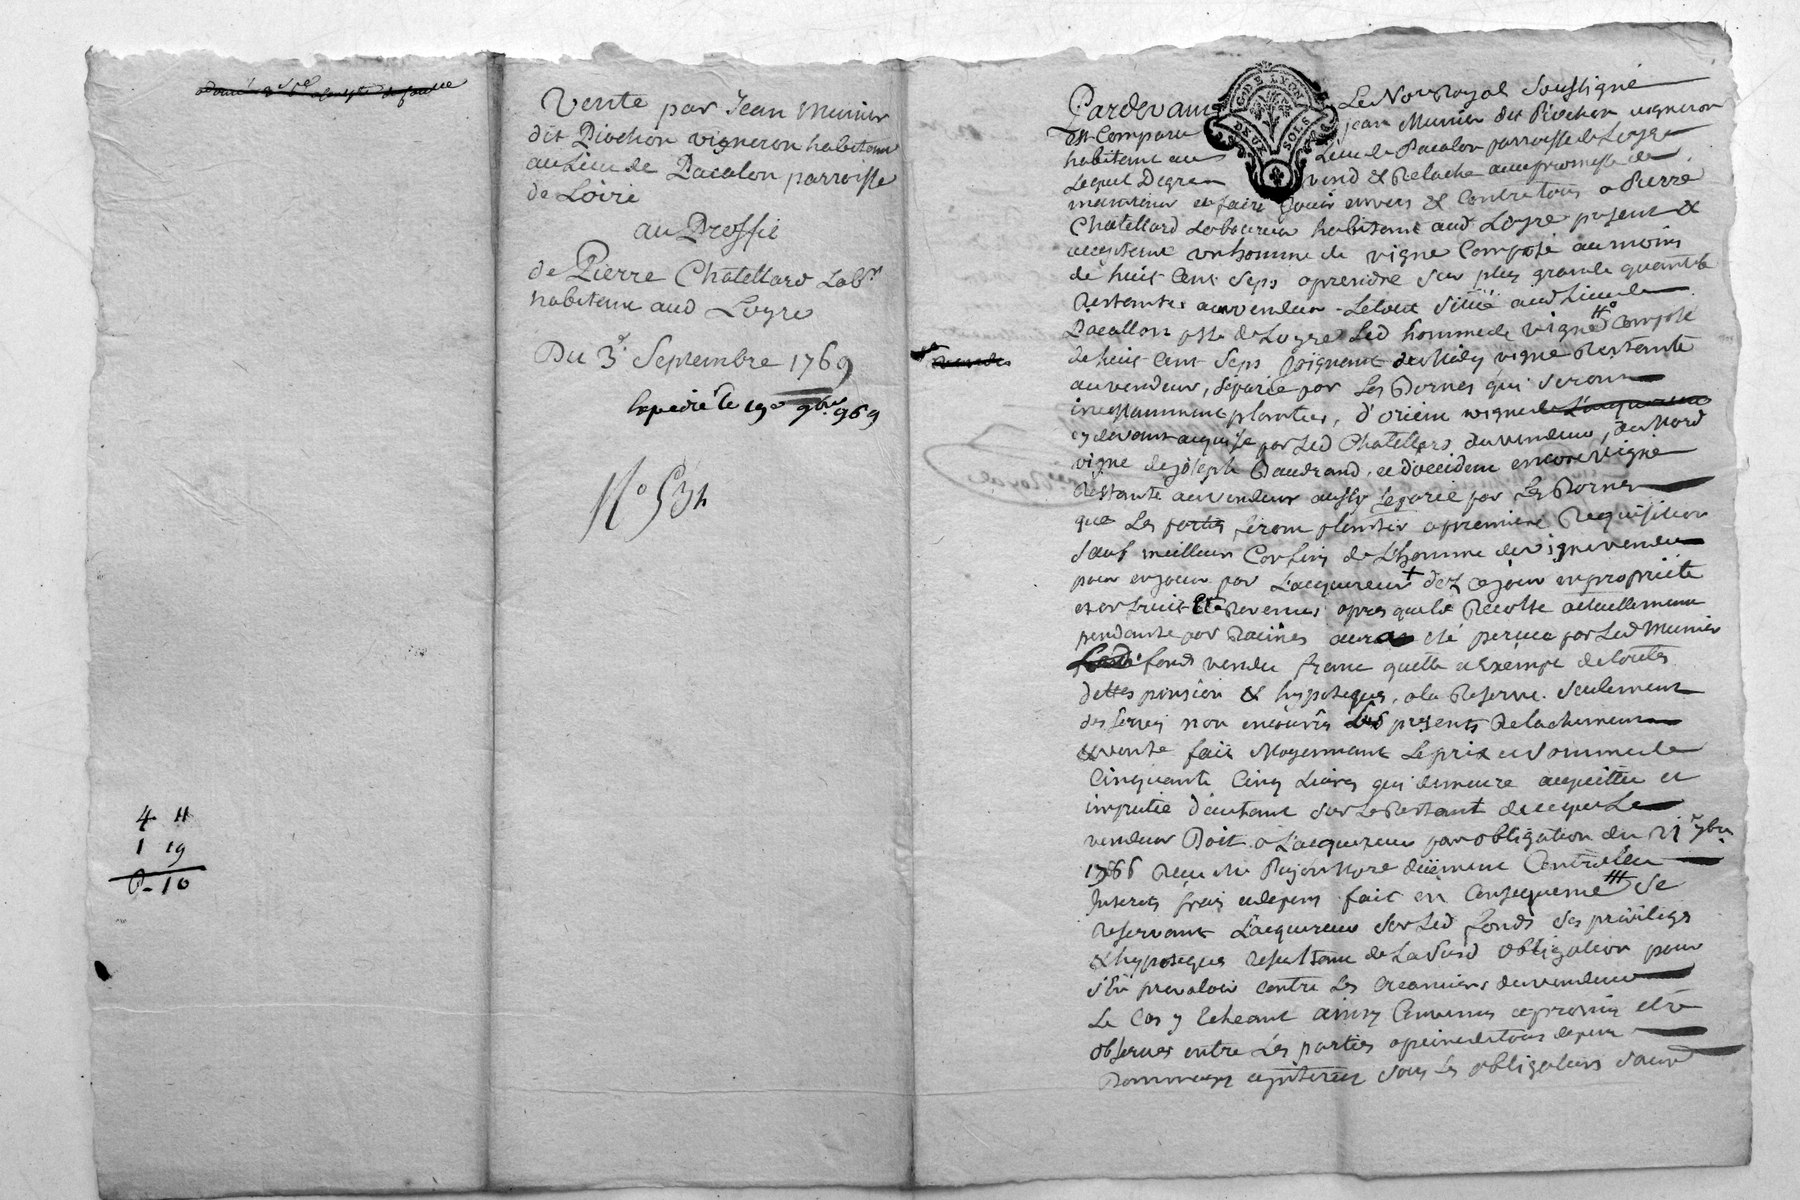 Vente par Jean Munier
dit Piochon vigneron habitant
au Lieu de Pacalon parroisse
de Loire
au Proffit
de Pierre Chatellard Labr
habitant aud Loyre
Du 3e. Septembre 1769
Expedié le 19e 9bre 969
No 534
4 11
1 19
6-10
G. DE LYON
DEUX SOLS
Pardevant Le Nore Royal Soussigné
Est Comparu jean Munier dit Piochon vigneron
habitant au Lieu de Pacalon parroisse de Loyre
Lequel Degré vend & Relache avec promesse de
maintenir et faire jouir envers & Contre tous a Pierre
Chatellard Laboureur habitant aud Loyre present &
acceptant un homme de vigne Composé au moins
de huit Cent Seps a prendre sur plus grande quantité
Restante au vendeur Le tout situé aud Lieu de
Pacallon psse de Loyre Led homme de vigne Composé
de huit Cent Seps joignant de Midy vigne Restante
au vendeur, séparée par Les Bornes qui seront
incessamment plantées, d'orient vigne de L'acquereur
cy devant acquise par Led Chatellard du vendeur, du Nord
vigne de joseph Gaudrand, et d'occident encore vigne
Restante au vendeur aussy separée par Les Bornes
que Les parties feront planter a premiere Requisition
Sauf meilleurs Confins de L'homme de vigne vendu
pour en jouir par L'acquereur dez ce jour en propriété
et en fruits & Revenus apres que la Recolte actuellement
pendante par Racines aura eté perçue par Led Munier
fond vendu franc quitte & exempt de toutes
dettes pension & hypoteques, a la Reserve Seulement
des servis non encourus Les presents Relachement
& vente fait Moyennant Le prix et somme de
Cinquante Cinq Livres qui demeure acquittée et
imputée d'autant sur Le Restant de ce que Le
vendeur Doit a L'acquereur par obligation du 21e 7bre
1766 Reçue Me Nore düement Controllée
Interets frais et depens fait en Consequence Se
Reservant L'acquereur sur Led fonds ses privileges
& hypoteques Resultant de La susd obligation pour
s'en prevaloir contre Les Creanciers du vendeur
Le Cas y Echeant ainsy Convenu et promis etre
observé entre Les parties a peine de tous depens
Dommages et interets sous Les obligations